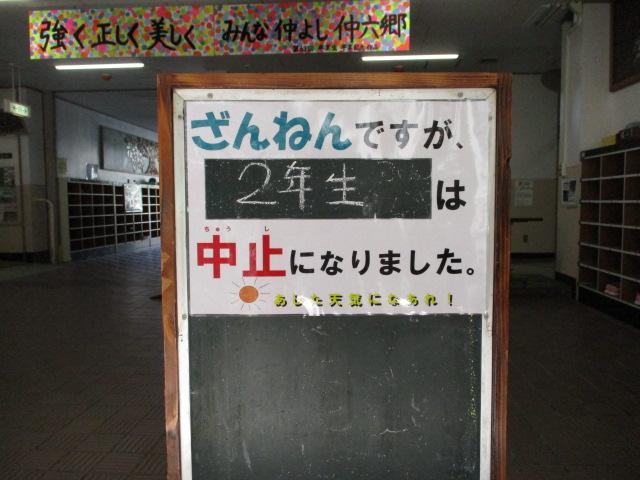 強く正しく美しく みんな仲よし仲六郷
ざんねんですが、
2年生は
ちゅうし
中止になりました。
あした天気になあれ！